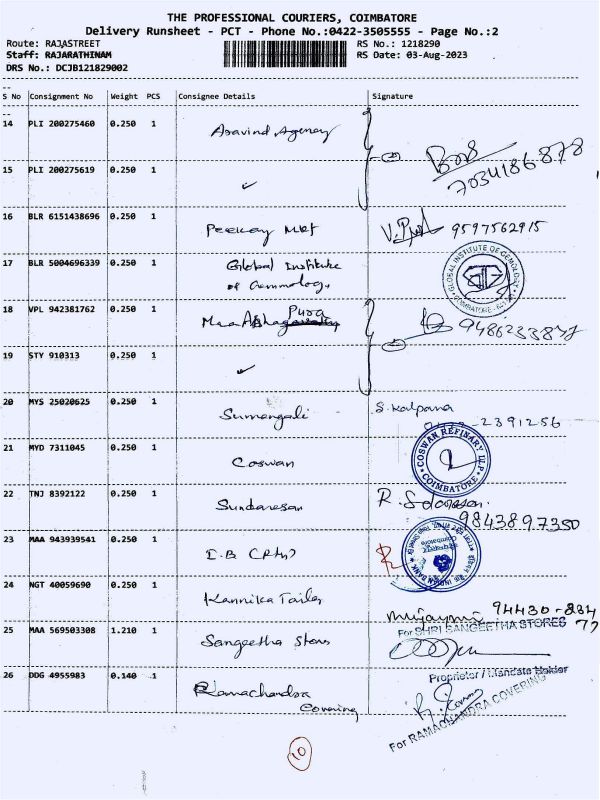 THE PROFESSIONAL COURIERS, COIMBATORE
Delivery Runsheet - PCT - Phone No.:0422-3505555 - Page No.:2
Route: RAJASTREET RS No.: 1218290
Staff: RAJARATHINAM RS Date: 03-Aug-2023
DRS No.: DCJB121829002
S No Consignment No Weight PCS Consignee Details Signature
14 PLI 200275460 0.250 1 Aravind Agency
7034186878
15 PLI 200275619 0.250 1 ✓
16 BLR 6151438696 0.250 1 Peekay Mkt 9597562915
17 BLR 5004696339 0.250 1 Global Institute
of Gemmology,
GLOBAL INSTITUTE OF GEMOLOGY
COIMBATORE
18 VPL 942381762 0.250 1 Pura
19 STY 910313 0.250 1 ✓
20 MYS 25020625 0.250 1 Sumangali S. Kalpana
2391256
21 MYD 7311045 0.250 1 Coswan
COSWAN REFINARY LLP
COIMBATORE
22 TNJ 8392122 0.250 1 Sundaresan
9843897350
23 MAA 943939541 0.250 1 I.B
INDIAN BANK
Coimbatore
24 NGT 40059690 0.250 1 Kannika Tailor
94430-884
77
25 MAA 569503308 1.210 1 Sangeetha Stores
For SHRI SANGEETHA STORES
Proprietor / Mandate Holder
26 DDG 4955983 0.140 1 Ramachandra
Covering
For RAMACHANDRA COVERING
10